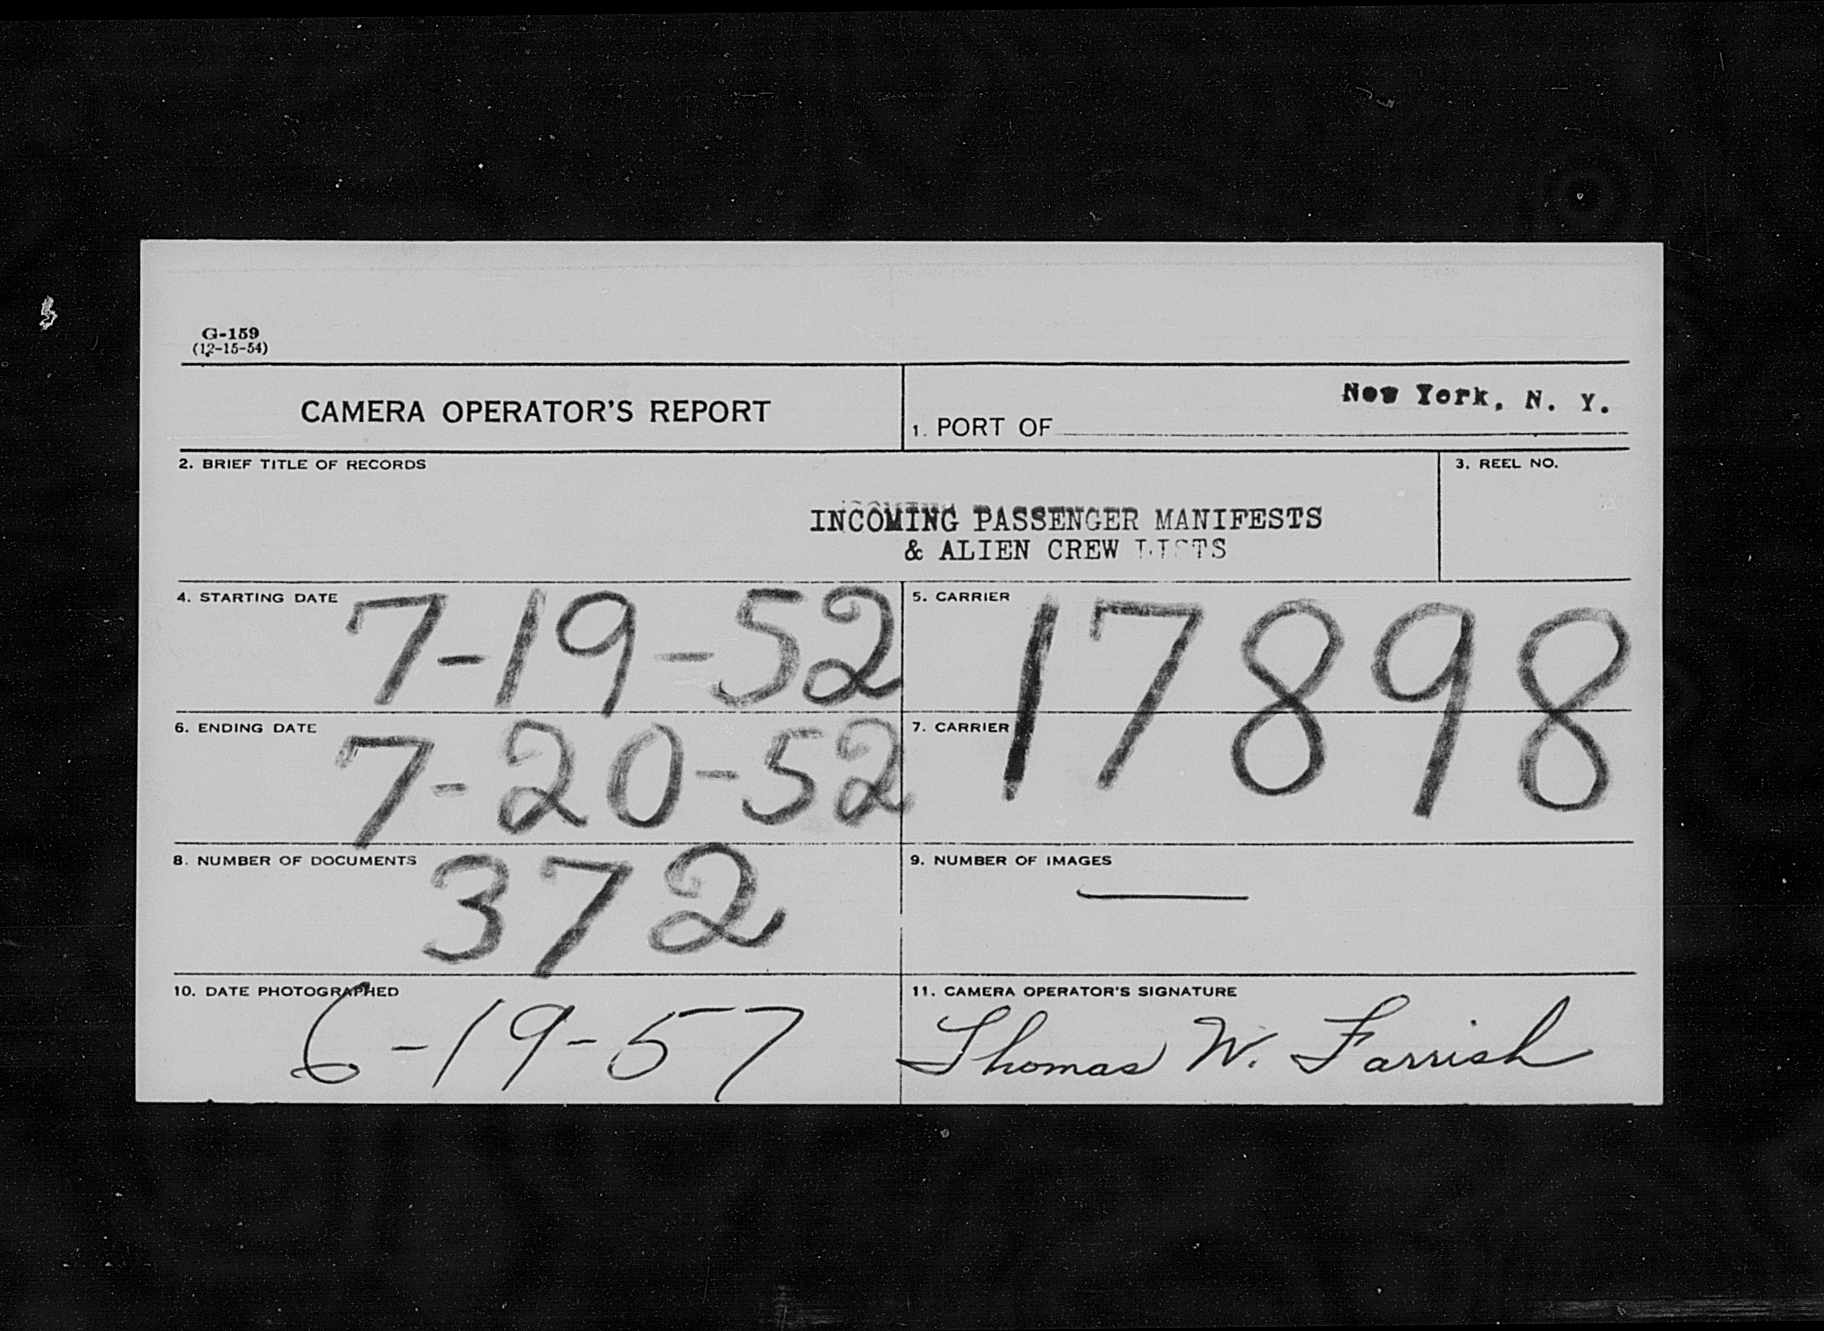 G-159
(12-15-54)
CAMERA OPERATOR'S REPORT
1. PORT OF New York, N. Y.
2. BRIEF TITLE OF RECORDS
INCOMING PASSENGER MANIFESTS
& ALIEN CREW LISTS
3. REEL NO.
4. STARTING DATE 7-19-52
5. CARRIER 17898
6. ENDING DATE 7-20-52
7. CARRIER
8. NUMBER OF DOCUMENTS 372
9. NUMBER OF IMAGES —
10. DATE PHOTOGRAPHED 6-19-57
11. CAMERA OPERATOR'S SIGNATURE Thomas W. Farrish